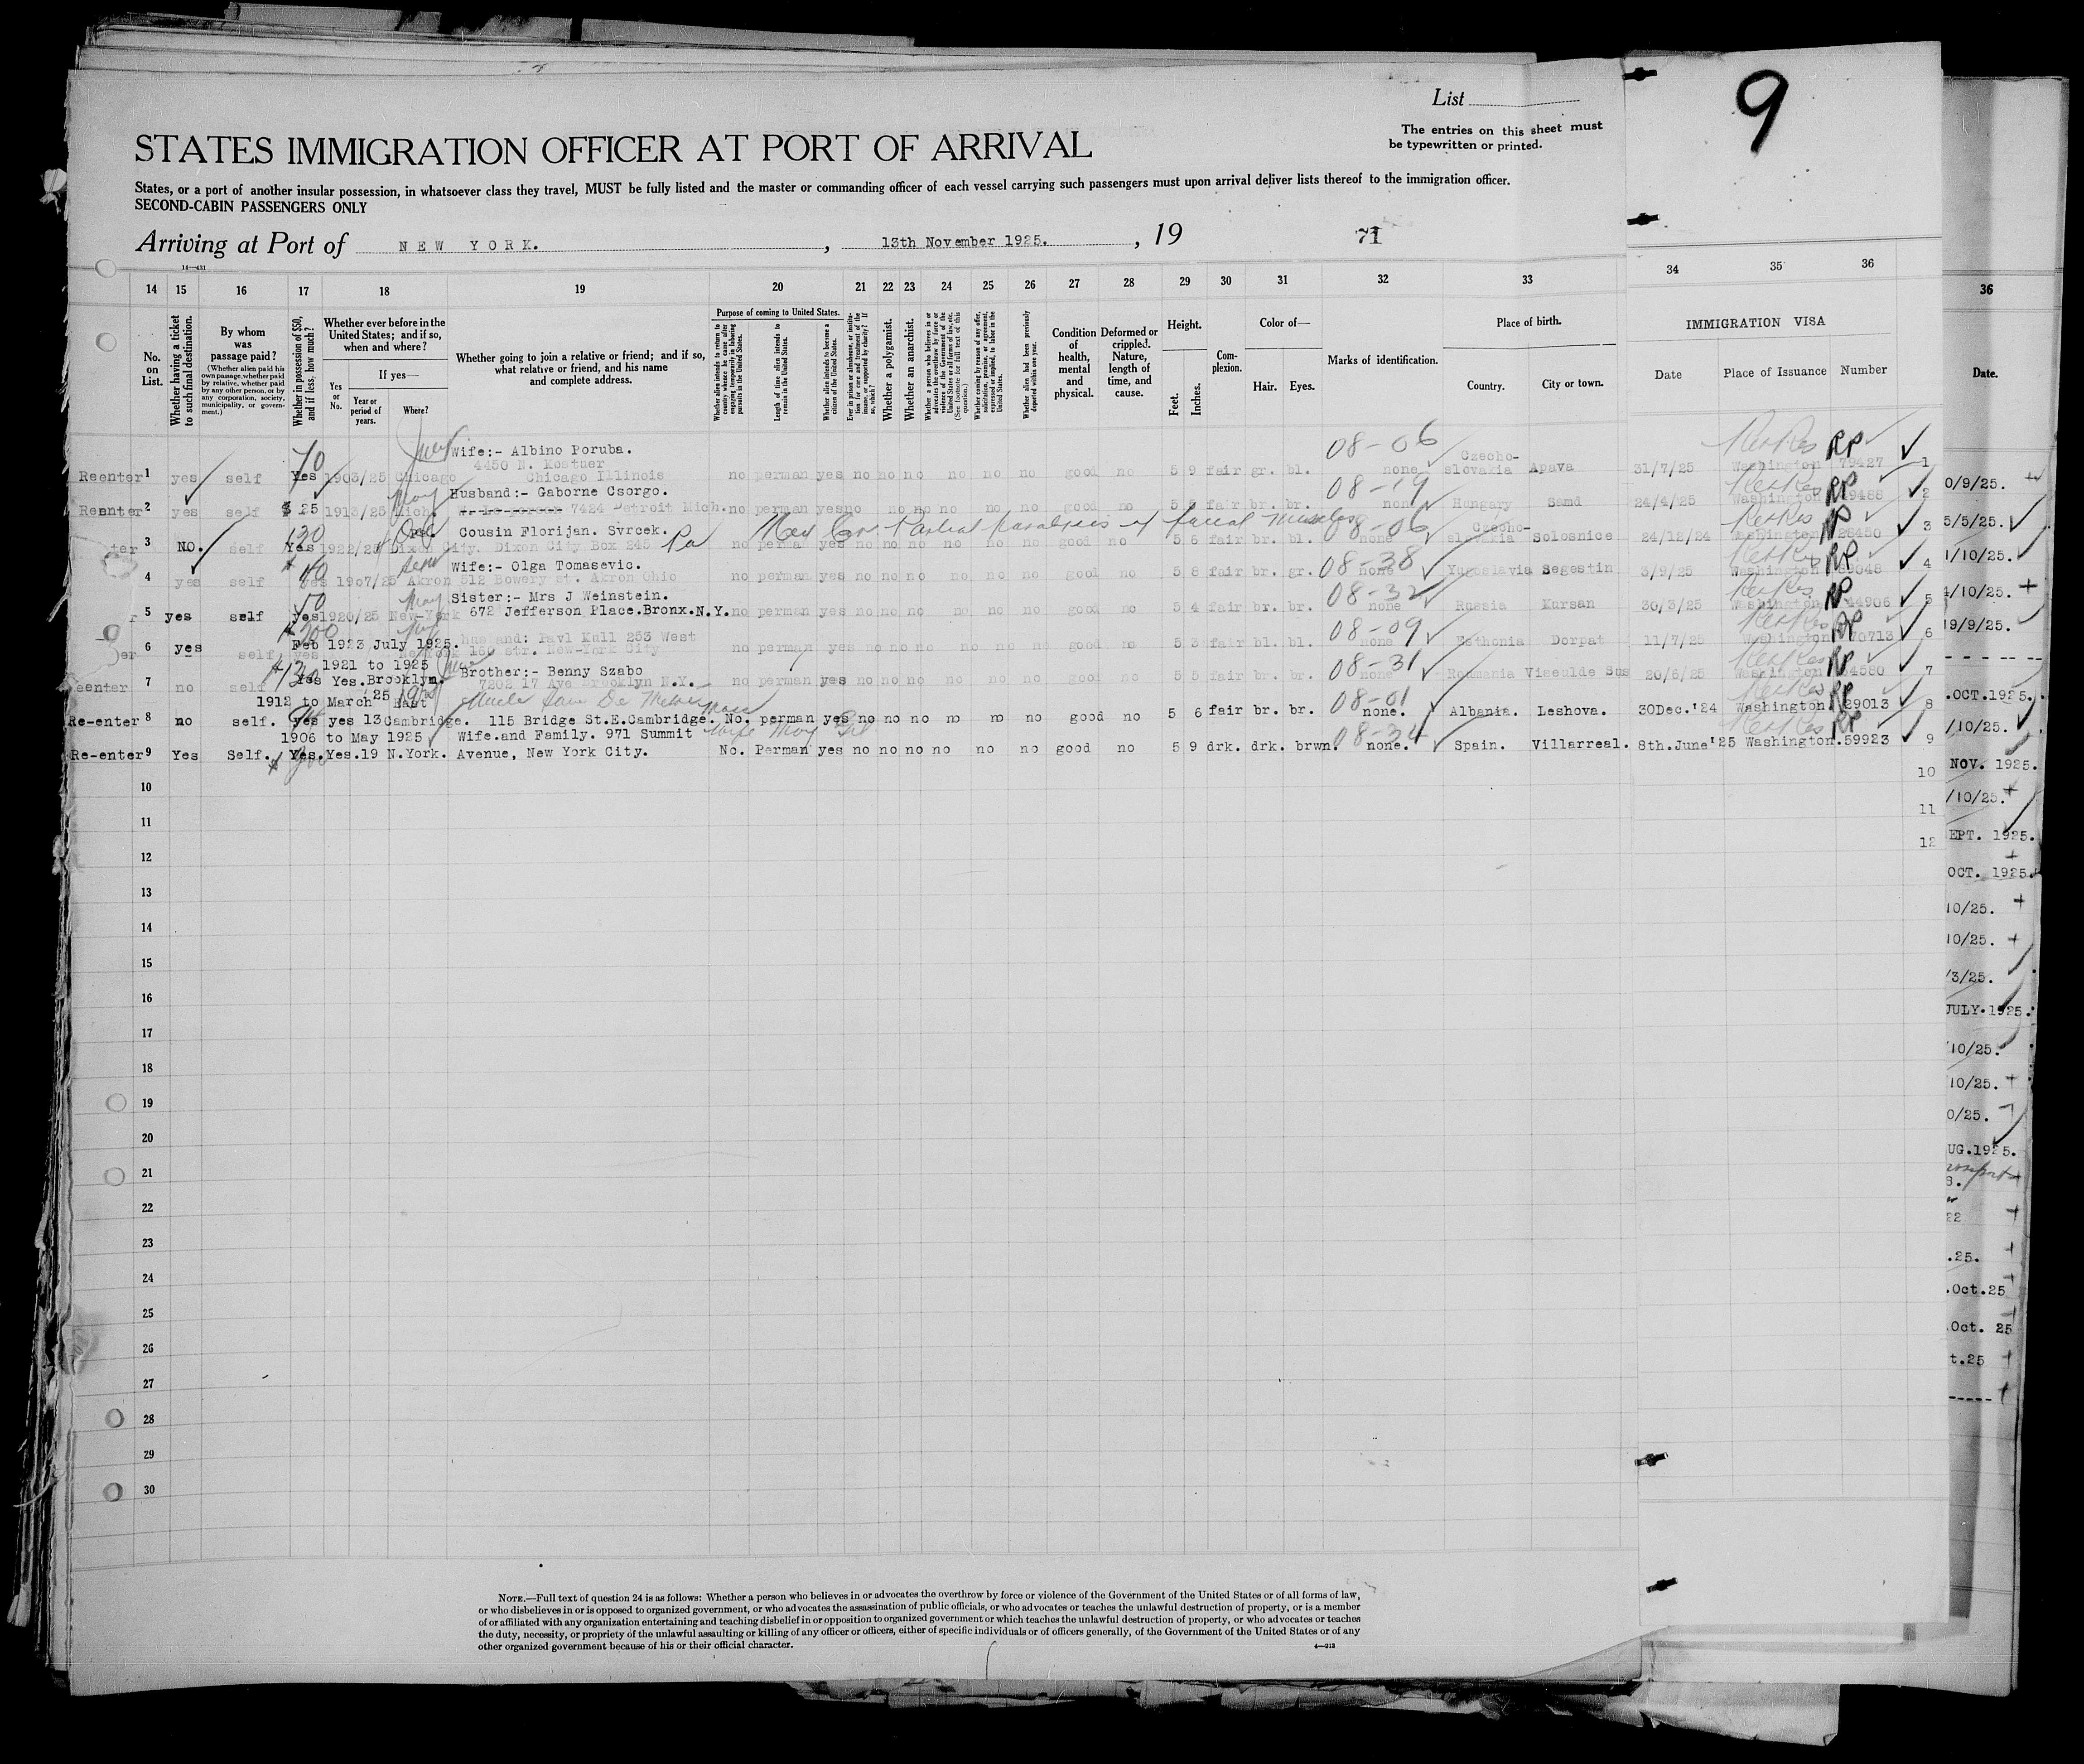 List
9
The entries on this sheet must
be typewritten or printed.
STATES IMMIGRATION OFFICER AT PORT OF ARRIVAL
States, or a port of another insular possession, in whatsoever class they travel, MUST be fully listed and the master or commanding officer of each vessel carrying such passengers must upon arrival deliver lists thereof to the immigration officer.
SECOND-CABIN PASSENGERS ONLY
Arriving at Port of NEW YORK. , 13th November 1925. , 19 71
14 15 16 17 18 19 20 21 22 23 24 25 26 27 28 29 30 31 32 33 34 35 36
No. on List.
Whether having a ticket to such final destination.
By whom was passage paid?
(Whether alien paid his own passage, whether paid by relative, whether paid by any other person, or by any corporation, society, municipality, or government.)
Whether in possession of $50, and if less, how much?
Whether ever before in the United States; and if so, when and where?
Yes or No.
If yes—
Year or period of years.
Where?
Whether going to join a relative or friend; and if so, what relative or friend, and his name and complete address.
Purpose of coming to United States.
Whether alien intends to return to country whence he came after engaging temporarily in laboring pursuits in the United States.
Length of time alien intends to remain in the United States.
Whether alien intends to become a citizen of the United States.
Ever in prison or almshouse, or institution for care and treatment of the insane, or supported by charity? If so, which?
Whether a polygamist.
Whether an anarchist.
Whether a person who believes in or advocates the overthrow by force or violence of the Government of the United States or all forms of law, etc. (See footnote for full text of this question.)
Whether coming by reason of any offer, solicitation, promise, or agreement, expressed or implied, to labor in the United States.
Whether alien had been previously deported within one year.
Condition of health, mental and physical.
Deformed or crippled. Nature, length of time, and cause.
Height.
Feet.
Inches.
Complexion.
Color of—
Hair. Eyes.
Marks of identification.
Place of birth.
Country. City or town.
IMMIGRATION VISA
Date Place of Issuance Number
36
Date.
70 Wife:- Albino Poruba. 08-06 Czecho- RP
4450 N. Kostner
Reenter 1 yes self Yes 1903/25 Chicago Chicago Illinois no perman yes no no no no no no good no 5 9 fair gr. bl. none slovakia Apava 31/7/25 Washington 79427 1
May Husband:- Gaborne Csorgo. 08-19 RP
Reenter 2 yes self $ 25 1913/25 Mich. 7424 Detroit Mich. no perman yes no no no no no no good no 5 5 fair br. br. none Hungary Samd 24/4/25 Washington 2
120 Cousin Florijan. Svrcek. Med Cer. Partial paralysis of facial muscles 08-06 Czecho- RP
3 NO. self Yes 1922/25 Dixon City. Dixon City Box 245 Pa no perma yes no no no no no no good no 5 6 fair br. bl. none slovakia Solosnice 24/12/24 Washington 26450 3
40 Wife:- Olga Tomasevic. 08-38 RP
4 yes self yes 1907/25 Akron 512 Bowery st. Akron Ohio no perman yes no no no no no no good no 5 8 fair br. gr. none Yugoslavia Segestin 3/9/25 Washington 4
50 May Sister:- Mrs J Weinstein. 08-32 RP
5 yes self yes 1920/25 New-York 672 Jefferson Place.Bronx.N.Y. no perman yes no no no no no no good no 5 4 fair br. br. none Russia Kursan 30/3/25 Washington 44906 5
200 Feb 1923 July 1925. husband: Pavl Kull 253 West 08-09 RP
6 yes self yes New York 160 str. New-York City no perman yes no no no no no no good no 5 3 fair bl. bl. none Esthonia Dorpat 11/7/25 Washington 70713 6
1921 to 1925 Brother:- Benny Szabo 08-31 RP
7 no self Yes Yes.Brooklyn. 7202 17 Ave Brooklyn N.Y. no perman yes no no no no no no good no 5 5 fair br. br. none Roumania Viseulde Sus 20/6/25 Washington 7
1912 to March '25 East Uncle Sam De Mass 08-01 RP
Re-enter 8 no self. yes yes 13 Cambridge. 115 Bridge St.E.Cambridge. No. perman yes no no no no no no good no 5 6 fair br. br. none. Albania. Leshova. 30Dec.'24 Washington. 29013 8
1906 to May 1925 Wife.and Family. 971 Summit wife May Gil 08-34 RP
Re-enter 9 Yes Self. Yes.Yes.19 N.York. Avenue, New York City. No. Perman yes no no no no no no good no 5 9 drk. drk. brwn. none. Spain. Villarreal. 8th.June'25 Washington.59923 9
10 10
11 11
12 12
13
14
15
16
17
18
19
20
21
22
23
24
25
26
27
28
29
30
0/9/25.
5/5/25.
1/10/25.
1/10/25.
9/9/25.
.OCT.1925.
/10/25.
NOV. 1925.
/10/25.
EPT. 1925.
OCT. 1925.
10/25.
10/25.
/3/25.
JULY.1925.
/10/25.
10/25.
0/25.
UG.1925.
22
.25.
.Oct.25
.Oct. 25
t.25
NOTE.—Full text of question 24 is as follows: Whether a person who believes in or advocates the overthrow by force or violence of the Government of the United States or of all forms of law,
or who disbelieves in or is opposed to organized government, or who advocates the assassination of public officials, or who advocates or teaches the unlawful destruction of property, or is a member
of or affiliated with any organization entertaining and teaching disbelief in or opposition to organized government or which teaches the unlawful destruction of property, or who advocates or teaches
the duty, necessity, or propriety of the unlawful assaulting or killing of any officer or officers, either of specific individuals or of officers generally, of the Government of the United States or of any
other organized government because of his or their official character.